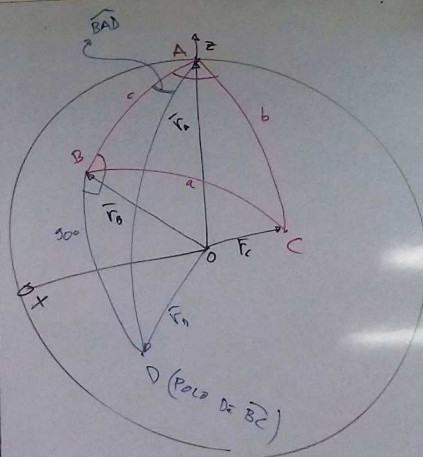 BAD
A
Z
c
b
r̅ₐ
B
a
r̅_B
90°
O
r̅_C
C
X
r̅_D
D (POLO DE BC)